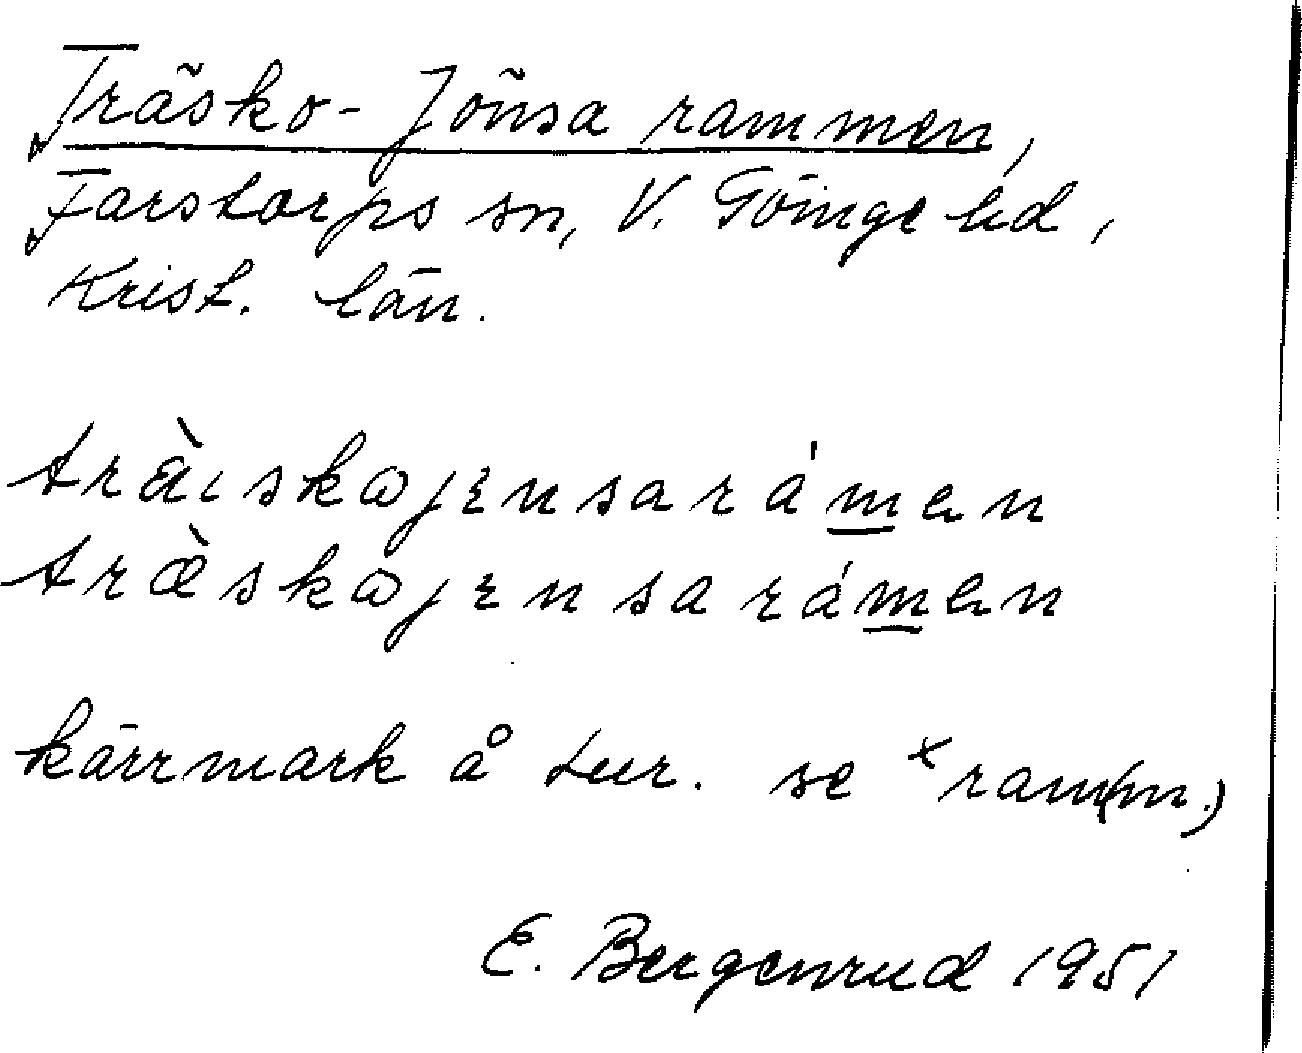 Träsko-Jönsa rammen,
Farstorps sn, V. Göinge hd,
Krist. län.
träıskωjɛnsarámən
træ̀skωjɛnsarámən
kärrmark å tur. se ×ram(m.)
E. Bergenrud 1951